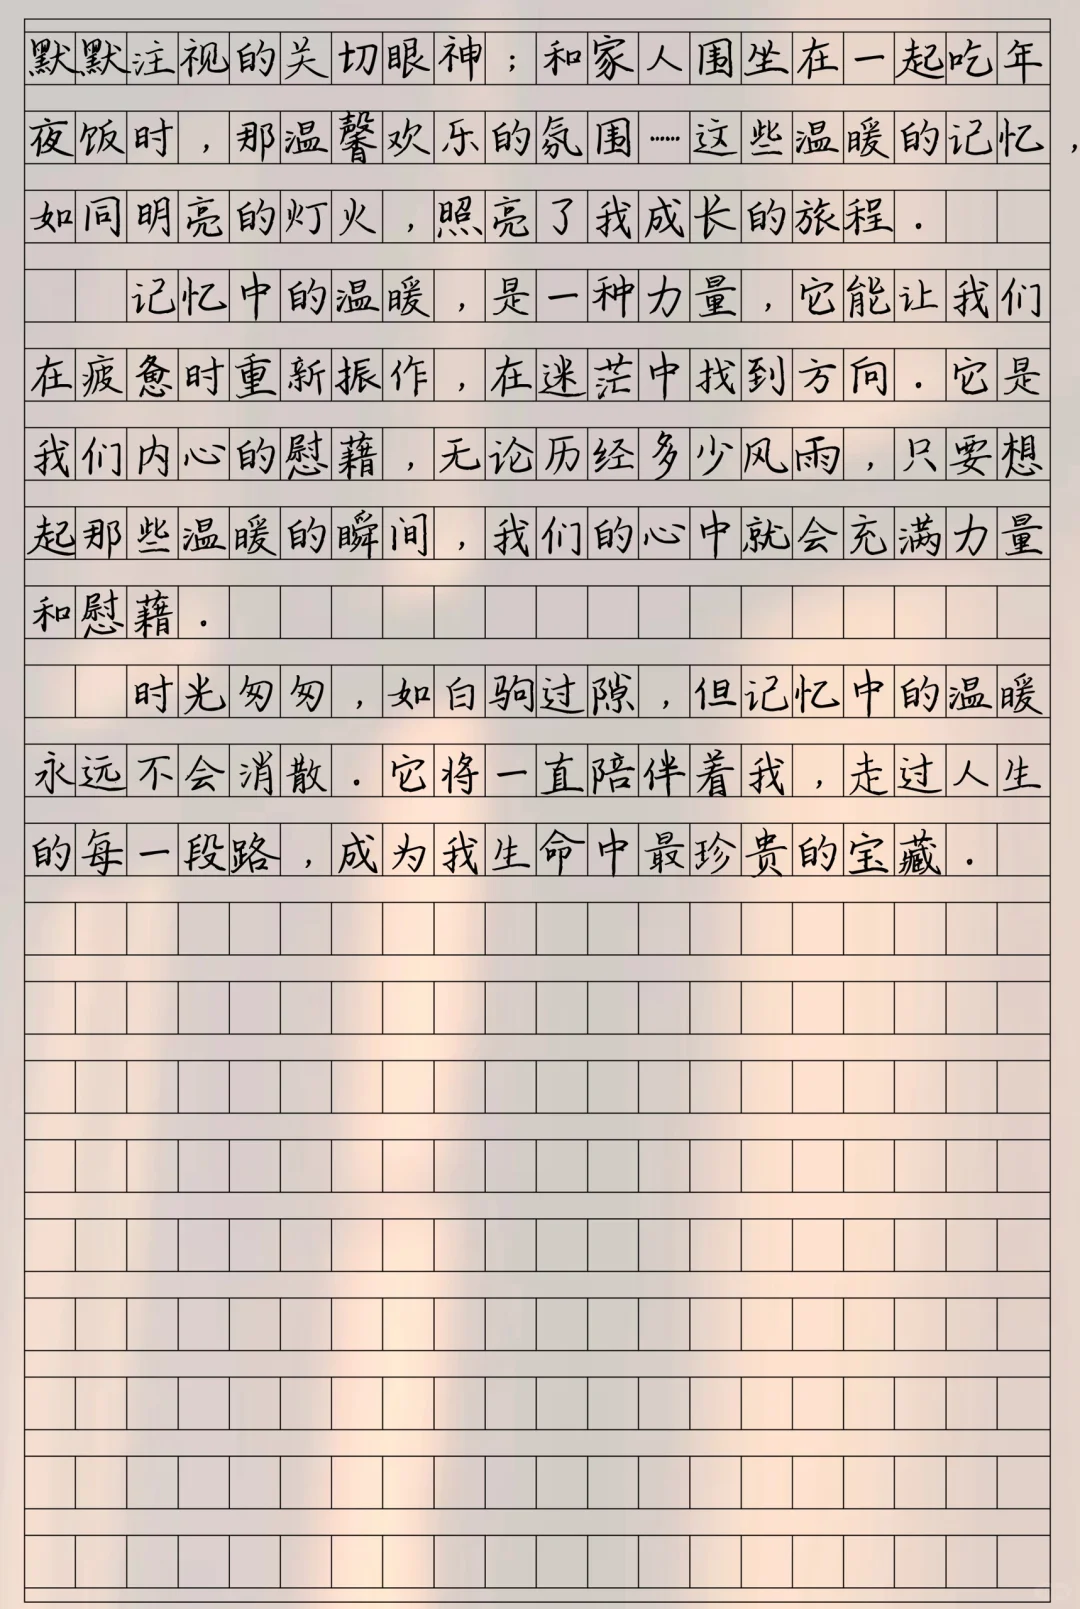 默默注视的关切眼神；和家人围坐在一起吃年
夜饭时，那温馨欢乐的氛围……这些温暖的记忆，
如同明亮的灯火，照亮了我成长的旅程．
记忆中的温暖，是一种力量，它能让我们
在疲惫时重新振作，在迷茫中找到方向．它是
我们内心的慰藉，无论历经多少风雨，只要想
起那些温暖的瞬间，我们的心中就会充满力量
和慰藉．
时光匆匆，如白驹过隙，但记忆中的温暖
永远不会消散．它将一直陪伴着我，走过人生
的每一段路，成为我生命中最珍贵的宝藏．